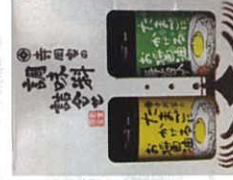 寺岡家の
調味料
詰合せ
たまごに
かける
お醤油
寺岡家の
たまごに
かける
お醤油